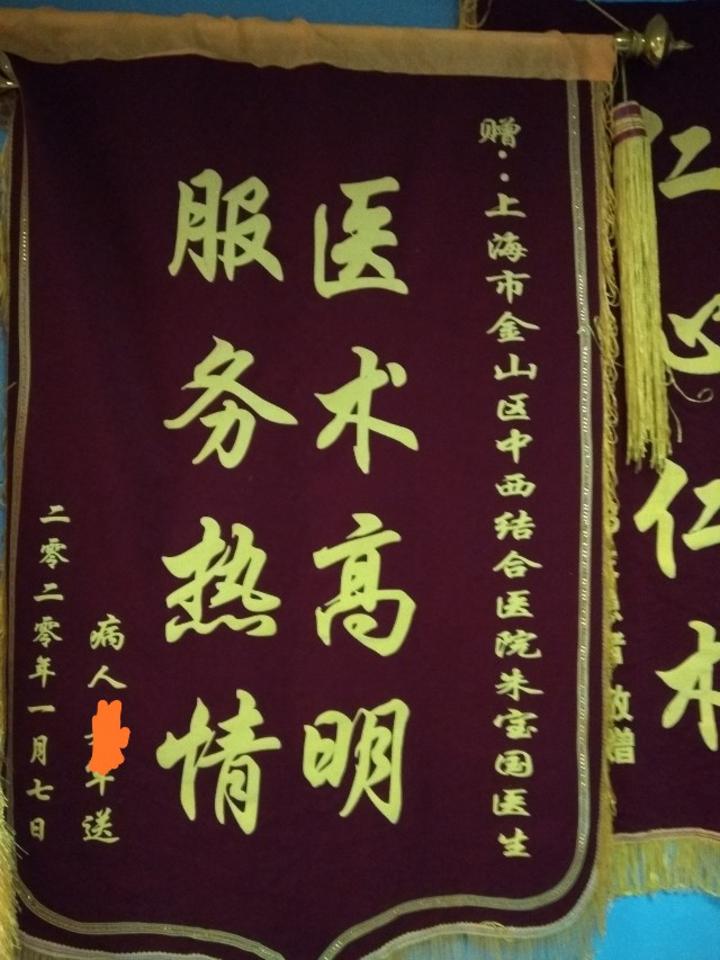 赠：上海市金山区中西结合医院朱宝国医生
医术高明
服务热情
病人
送
二零二零年一月七日
仁心仁术